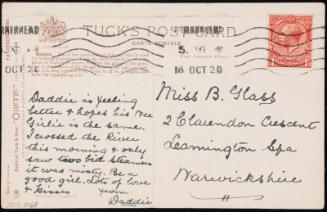 TUCK'S POST CARD
CARTE POSTALE
5.
16 OCT 20
OCT 20
Miss B. Glass
2 Clarendon Crescent
Leamington Spa
Warwickshire
Daddie is feeling
better & hopes his wee
Girlie is the same.
I crossed the River
this morning & only
saw two big steamers
it was misty. Be a
good girl. Lots of love
& kisses from
Daddie